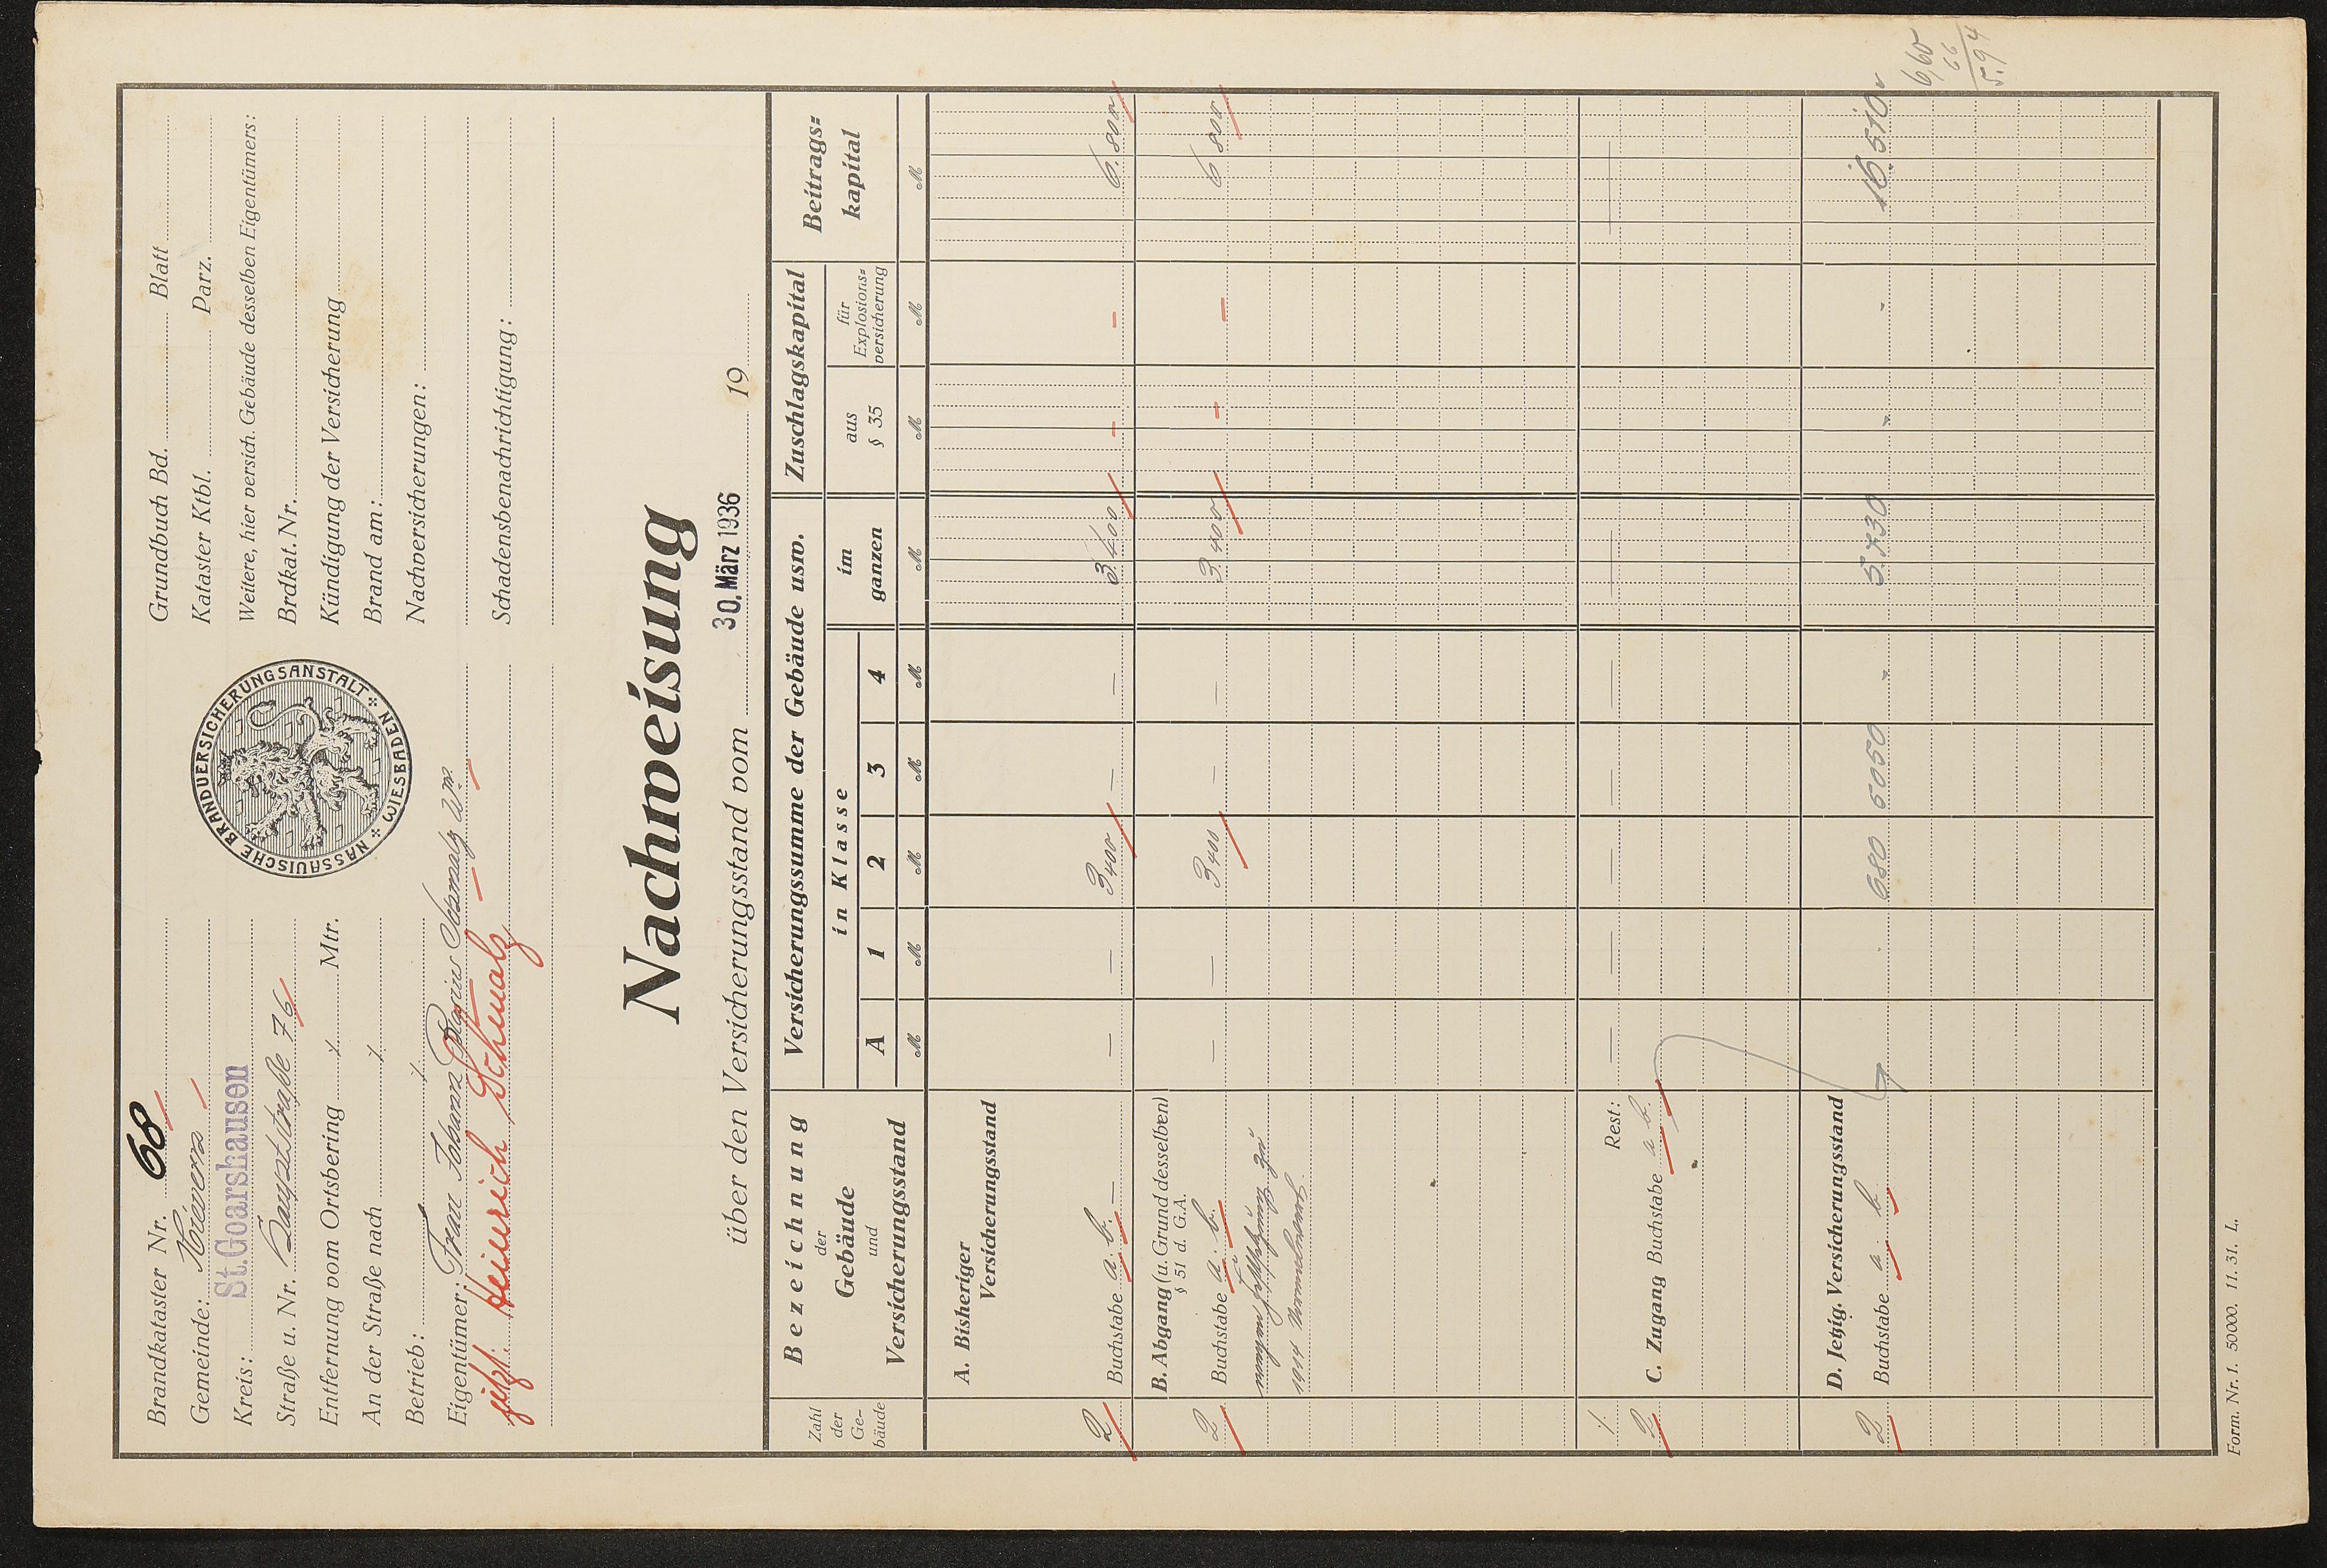 Brandkataster Nr. 68
Gemeinde: Kievern
Kreis: St. Goarshausen
Straße u. Nr. Hauptstraße 76
Entfernung vom Ortsbering Mtr.
An der Straße nach
Betrieb:
Eigentümer: Frau Johann Schmalz Ww.
jetzt: Heinrich Schmalz
NASSAUISCHE BRANDVERSICHERUNGSANSTALT
WIESBADEN
Grundbuch Bd. Blatt
Kataster Ktbl. Parz.
Weitere, hier versich. Gebäude desselben Eigentümers:
Brdkat. Nr.
Kündigung der Versicherung
Brand am:
Nachversicherungen:
Schadensbenachrichtigung:
Nachweisung
über den Versicherungsstand vom 30. März 1936 19
Zahl der Ge-bäude
Bezeichnung der Gebäude und Versicherungsstand
Versicherungssumme der Gebäude usw.
in Klasse
A 1 2 3 4
im ganzen
Zuschlagskapital
aus § 35
für Explosions-versicherung
Beitrags-kapital
M M M M M M M M M
A. Bisheriger
Versicherungsstand
2 Buchstabe a. b. — — — 3400 — — 3400 - - 6.800
B. Abgang (u. Grund desselben)
§ 51 d. G.A.
2 Buchstabe a. b. — — 3400 — — 3.400 - - 6 800
wegen
1914
Rest: — — — — — — —
2 C. Zugang Buchstabe a b.
D. Jetzig. Versicherungsstand
2 Buchstabe a b 680 5050 - 5.730 - - 16.510
6,60
66
5.94
Form. Nr. 1. 50000. 11. 31. L.